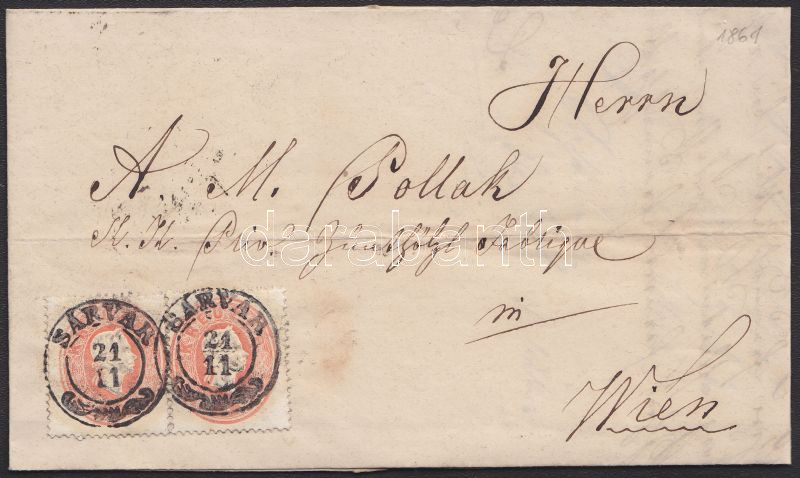 1861
Herrn
A M. Pollak
K. K. Priv. Zündhölzl Fabrique
in
Wien
darabanth
SÁRVÁR
21
11
SÁRVÁR
21
11